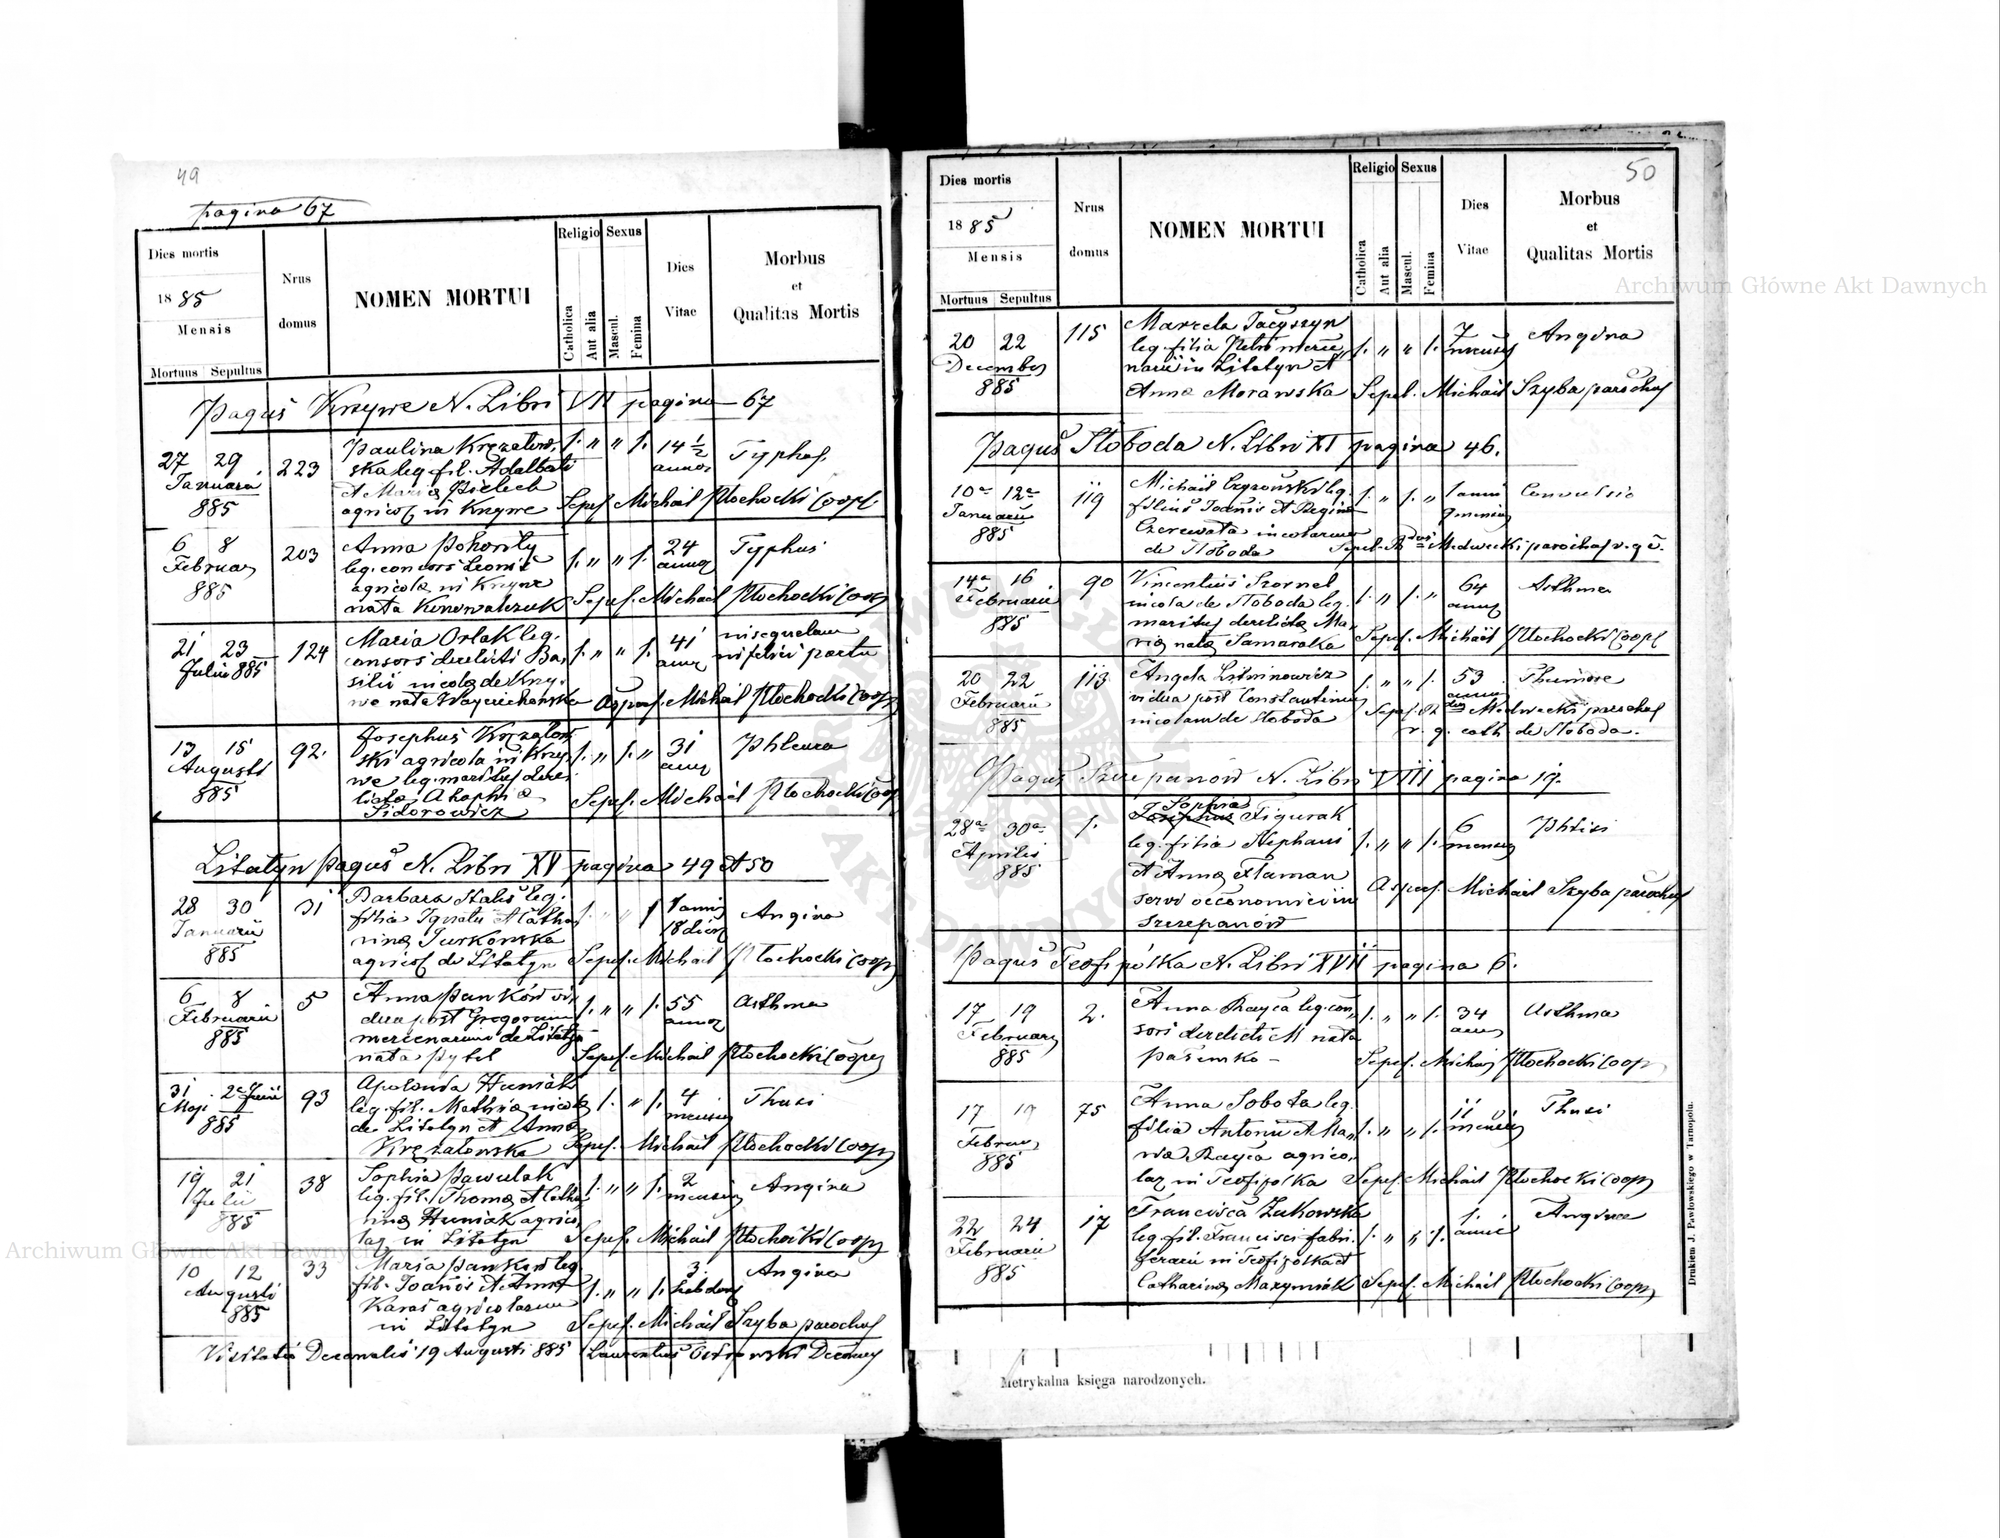 49
pagina 67
Dies mortis
1885
Mensis
Mortuus Sepultus
Nrus
domus
NOMEN MORTUI
Religio
Catholica
Aut alia
Sexus
Mascul.
Femina
Dies
Vitae
Morbus
et
Qualitas Mortis
Pagus Krzywe N. Libri VII pagina 67
27 29
Januarii
885
223
Paulina
ska leg. fil. Adalberti
et Maria Bielech
agricol in Krzywe
1. " " 1.
14 1/2
annor
Typhus
Sepel. Michael Płochocki Coop.
6 8
Februar
885
203
Anna
leg. consors Leonis
agricola in Krzywe
nata Kowalczuk
1. " " 1.
24
annor
Typhus
Sepel. Michael Płochocki Coop
21 23
Julii 885
124
Maria Orlak leg.
consors derelicti Ba
silii incola de Krzy
we nata Wayciechowska
1. " " 1.
41
annor
in sequelam
infelici partu
Asper. Michael Płochocki Coop
13 15
Augusti
885
92.
Josephus
ski agricola in Krzy
we leg. maritus dere
licta Ahaphia
Sidorowicz
1. " 1. "
31
annor
Phleura
Sepel. Michael Płochocki Coop
Litatyn pagus N. Libri XV pagina 49 et 50
28 30
Januarii
885
31
Barbara Stalis leg.
filia Ignatii et Catha
rina Jurkowska
agricol de Litatyn
1. " " 1
1 anni
18 dier
Angina
Sepel. Michael Płochocki Coop
6 8
Februarii
885
5
Anna Pańków vi
dua post Gregorium
mercenarium de Litatyn
nata Pytel
1. " " 1.
55
annor
Asthma
Sepel. Michael Płochocki Coop
31 2 Junii
Maji
885
93
Apolonia Huniak
leg. fil. Mathia incola
de Litatyn et Anna
1. " 1.
4
mensis
Thusi
Sepel. Michael Płochocki Coop
19 21
Julii
885
38
Sophia Pawulak
leg. fil. Thoma et Catha
rina Huniak agrico
lar in Litatyn
1. " " 1.
2
mensium
Angina
Sepel. Michael Płochocki Coop
10 12
Augusti
885
33
Maria Pańków leg
fil. Joannis et Anna
Karaś agricolarum
in Litatyn
1. " " 1.
3.
hebdom
Angina
Sepel. Michael Szyba parochus
Visitatio Decanalis 19 Augusti 885 Laurentius Decanus
50
Dies mortis
1885
Mensis
Mortuus Sepultus
Nrus
domus
NOMEN MORTUI
Religio
Catholica
Aut alia
Sexus
Mascul.
Femina
Dies
Vitae
Morbus
et
Qualitas Mortis
20 22
December
885
115
Marcela Taczyszyn
leg. filia Petri merce
narii in Litatyn et
Anna Morawska
1. " " 1.
7
mensis
Angina
Sepel. Michael Szyba parochus
Pagus Słoboda N. Libri XI pagina 46.
10a 12a
Januarii
885
119
Michael leg.
filius Joannis et Regina
Czerewata incolarum
de Słoboda
1. " 1. "
1 anni
9 mensis
Convulsio
Sepel. Rdus Medwecki parochus r. g. c.
14a 16
Februarii
885
90
Vincentius Szornel
incola de Słoboda leg.
maritus derelicta Ma
ria nata Samaraka
1. " 1. "
64
annor
Asthma
Sepel. Michael Płochocki Coop
20 22
Februarii
885
113
Angela Litwinowicz
vidua post Constantinum
incolam de Słoboda
1. " " 1.
53
annor
Thumore
Sepel. Rdus Medwecki parochus
r. g. cath. de Słoboda.
Pagus Szczepanów N. Libri VIII pagina 19.
28a 30a
Aprilis
885
1.
Sophia
Josephus Figurak
leg. filia Stephani
et Anna Flaman
servi oeconomici in
Szczepanów
1. " " 1.
6
mensis
Phtisi
Asper. Michael Szyba parochus
Pagus Teofipólka N. Libri XVII pagina 6.
17 19
Februarii
885
2.
Anna Rayca leg. con
sors derelicti M nata
1. " " 1.
34
ann
Asthma
Sepel. Michael Płochocki Coop
17 19
Februar
885
75
Anna Sobota leg.
filia Antonii et Ma
ria Rayca agrico
lar in Teofipolka
1. " " 1.
11
mensis
Thusi
Sepel. Michael Płochocki Coop
22 24
Februarii
885
17
Francisca Żukowska
leg. fil. Francisci fabri
ferarii in Teofipolka et
Catharina Maxymiak
1. " " 1.
1.
anni
Angina
Sepel. Michael Płochocki Coop
Drukiem J. Pawłowskiego w Tarnopolu.
Metrykalna księga narodzonych.
Archiwum Główne Akt Dawnych
Archiwum Główne Akt Dawnych
ARCHIWUM GŁÓWNE AKT DAWNYCH